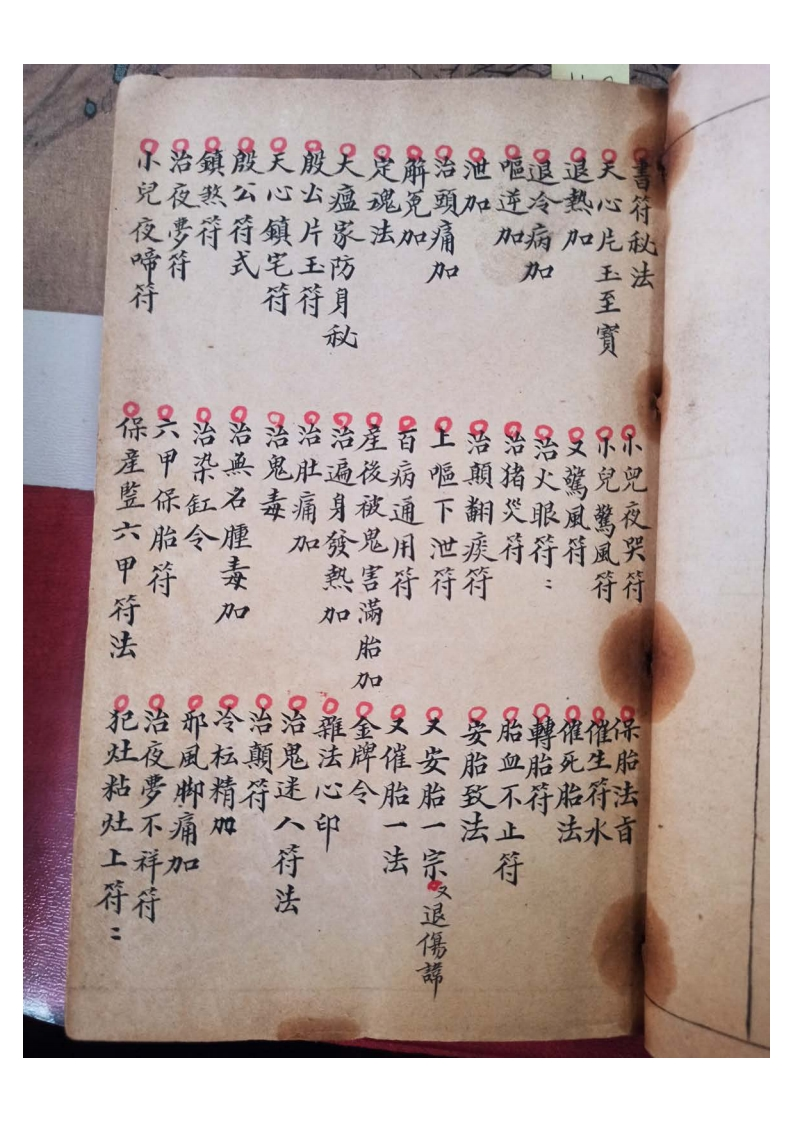 書符秘法
天心片玉至寳
退熱加
退冷病加
嘔逆加
泄加
治頭痛加
解冤加
定魂法
大瘟家防身秘
殷公片玉符
天心鎮宅符
殷公符式
鎮煞符
治夜夢符
小兒夜啼符
小兒夜哭符
小兒驚風符
又驚風符
治火眼符：
治猪災符
治顛翻痰符
上嘔下泄符
百病通用符
産後被鬼害滿胎加
治遍身發熱加
治肚痛加
治鬼毒
治無名腫毒加
治染缸令
六甲保胎符
保産監六甲符法
保胎法旨
催生符水
催死胎法
轉胎符
胎血不止符
安胎致法
又安胎一宗
又退傷諱
又催胎一法
金牌令
雜法心印
治鬼迷人符法
治顛符
冷枟精加
邪風脚痛加
治夜夢不祥符
犯灶粘灶上符：